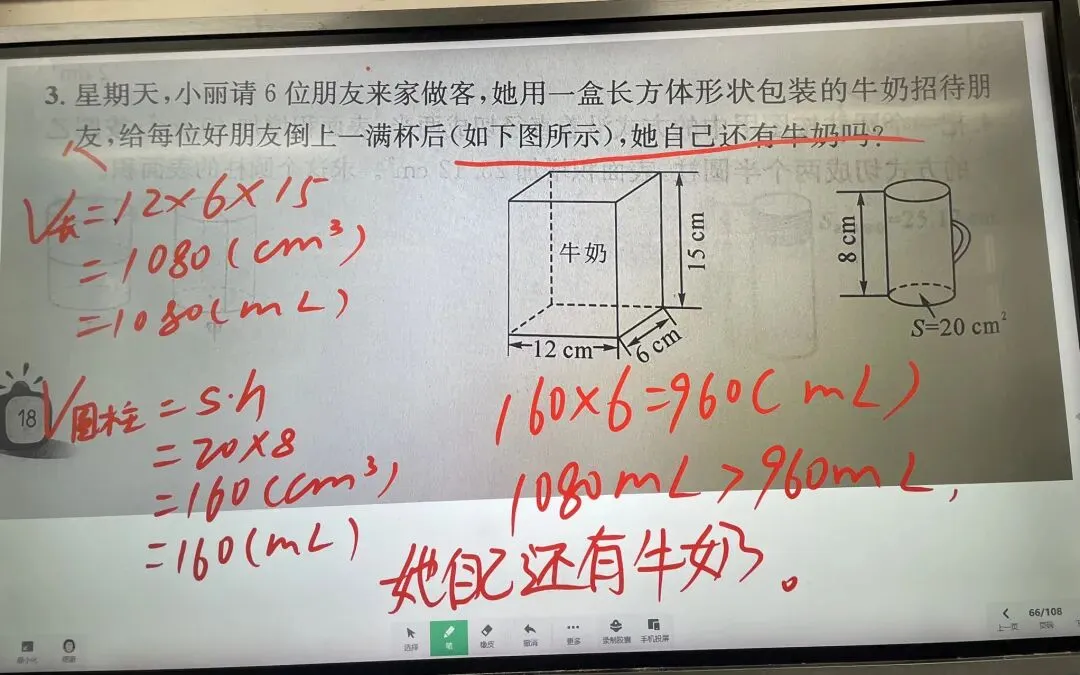 3. 星期天，小丽请 6 位朋友来家做客，她用一盒长方体形状包装的牛奶招待朋
友，给每位好朋友倒上一满杯后（如下图所示），她自己还有牛奶吗？
V长=12×6×15
=1080(cm³)
=1080(mL)
牛奶
15 cm
12 cm
6 cm
8 cm
S=20 cm²
18
V圆柱=S·h
=20×8
=160(cm³)
=160(mL)
160×6=960(mL)
1080mL>960mL，
她自己还有牛奶。
最小化
选择
笔
橡皮
撤消
更多
录制胶囊
手机投屏
上一页
66/108
页码